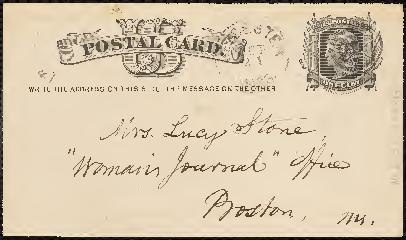 POSTAL CARD.
WRITE THE ADDRESS ON THIS SIDE - THE MESSAGE ON THE OTHER
Mrs. Lucy Stone,
"Woman's Journal" Office
Boston, Ms.